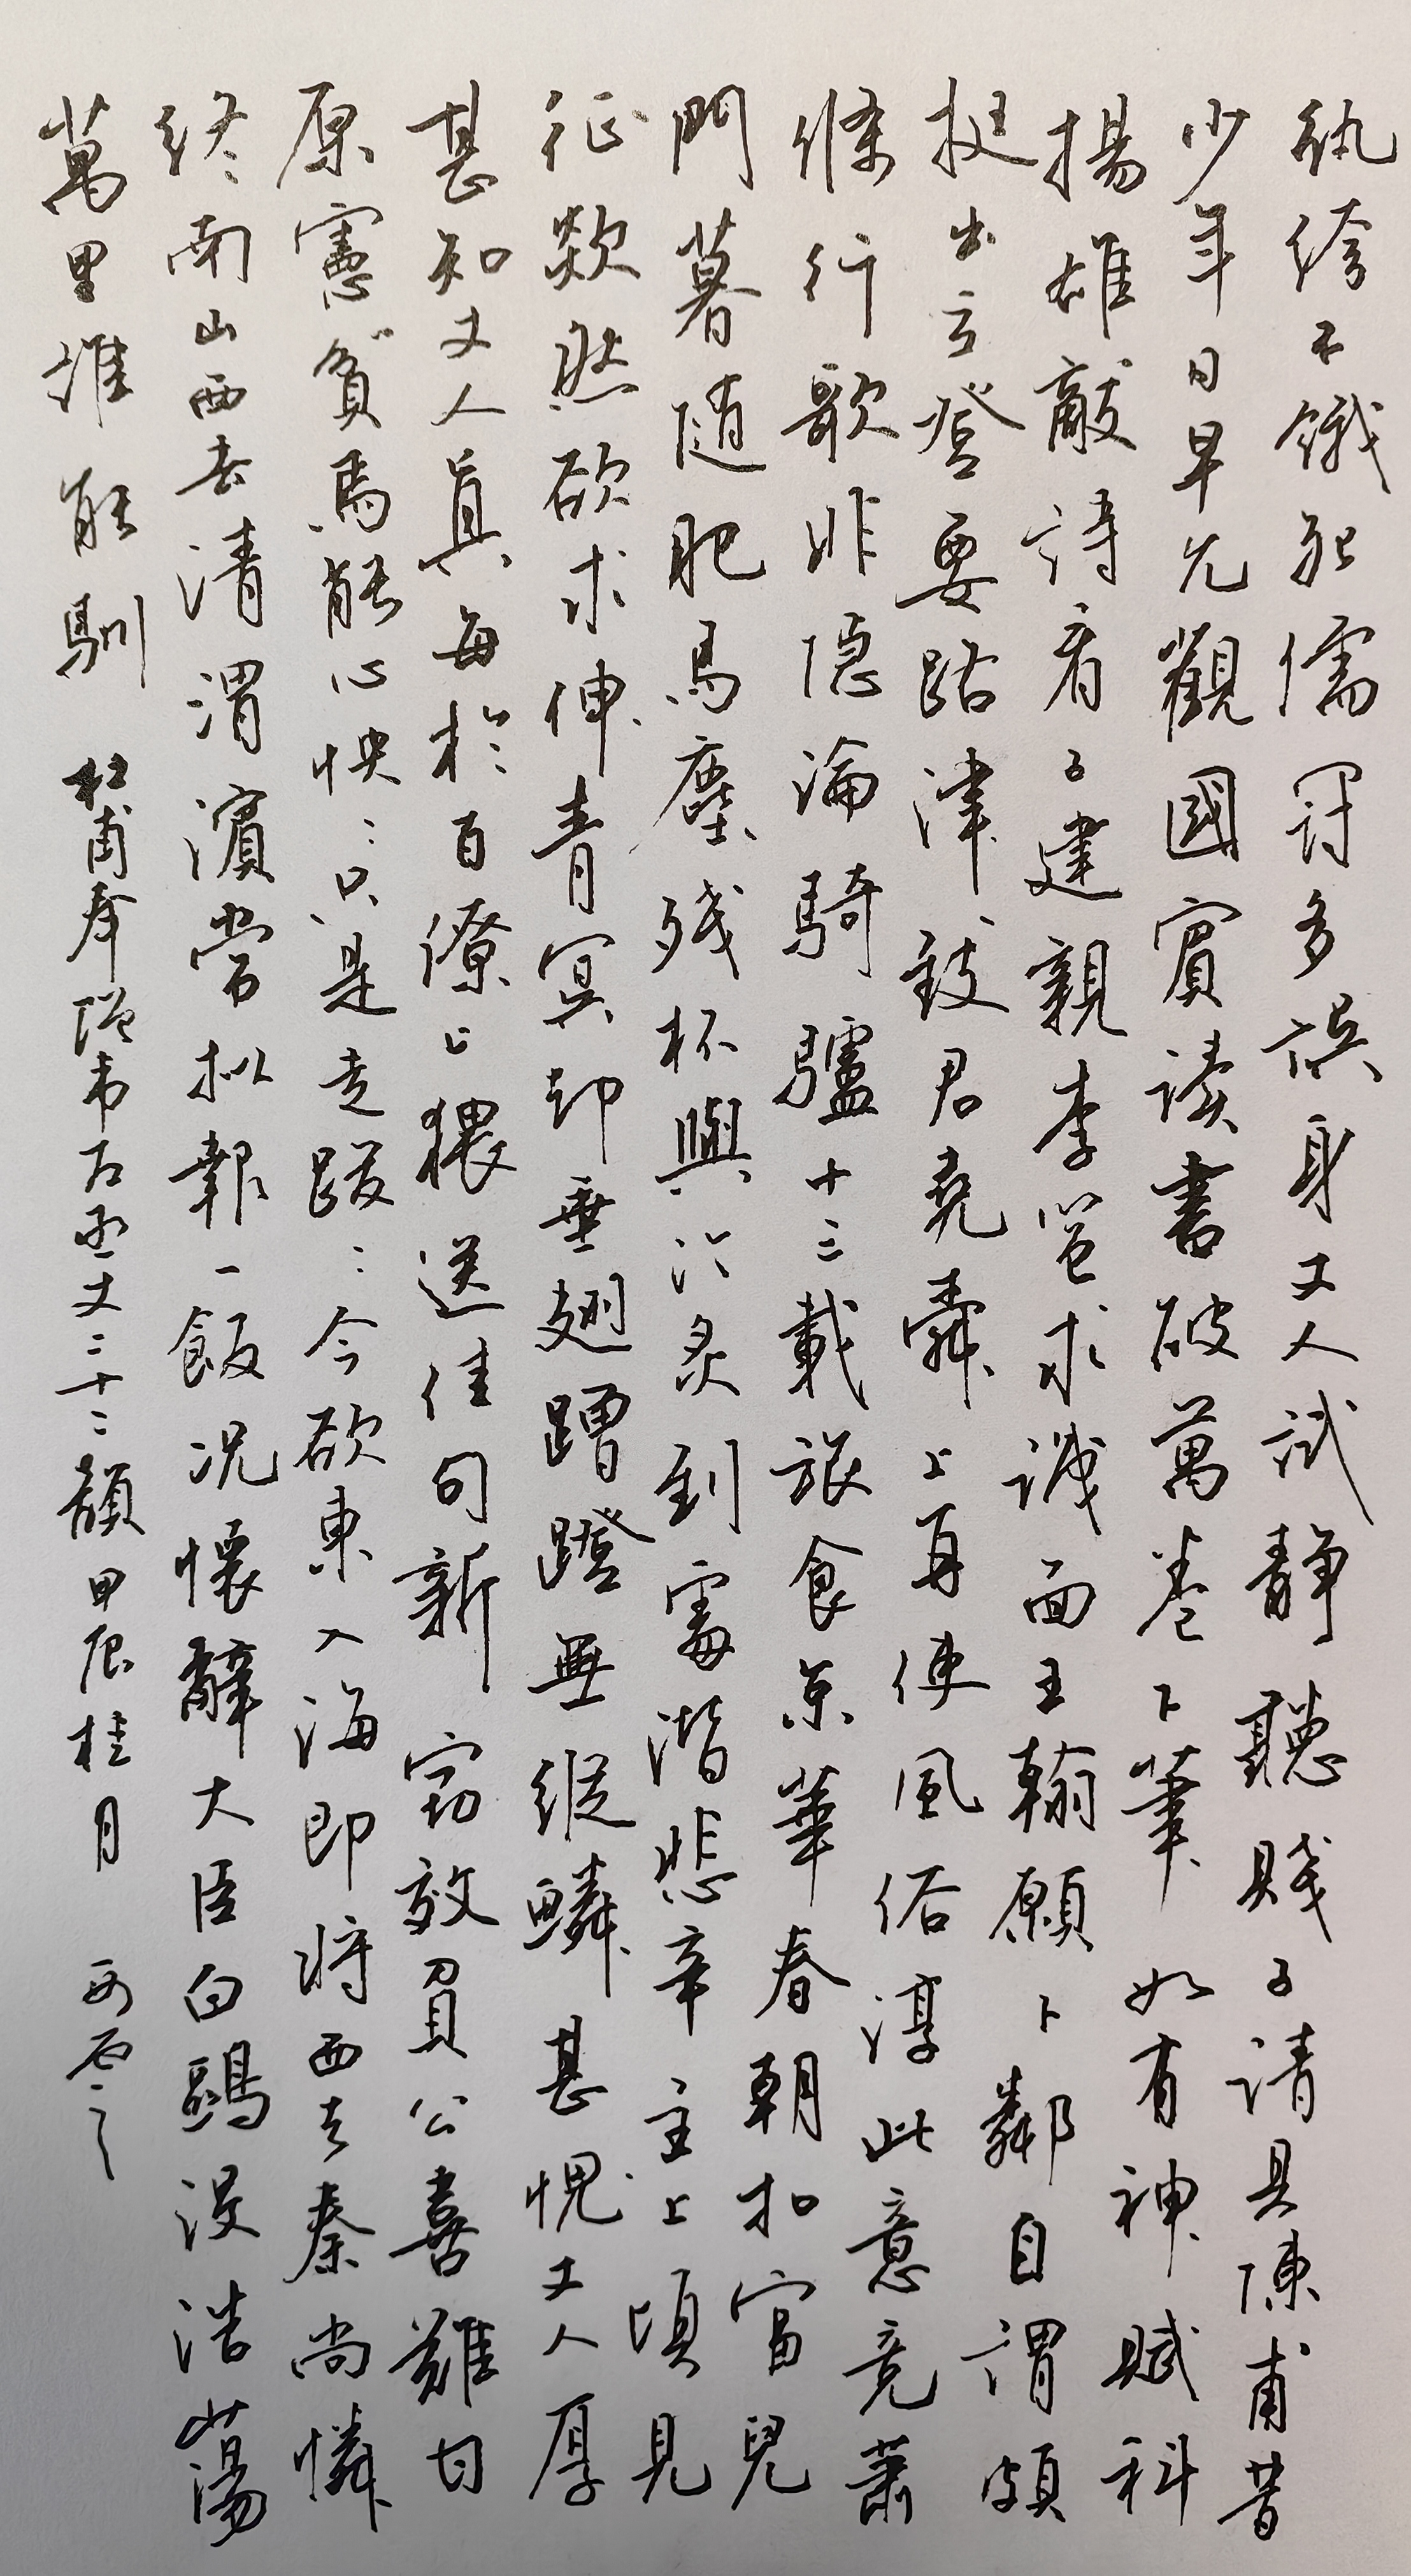 紈絝不餓死儒冠多誤身丈人試靜聽賤子請具陳甫昔
少年日早充觀國賓读書破萬卷下筆如有神賦科
揚雄敵詩看子建親李邕求識面王翰願卜鄰自謂頗
挺出立登要路津致君堯舜上再使風俗淳此意竟蕭
條行歌非隱淪騎驢十三載旅食京華春朝扣富兒
門暮随肥馬塵残杯與冷炙到處潛悲辛主上頃見
征欻然欲求伸青冥却垂翅蹭蹬無縱鱗甚愧丈人厚
甚知丈人真每於百僚上猥送佳句新竊效貢公喜難甘
原憲貧焉能心怏:只是走踆:今欲東入海即將西去秦尚憐
終南山西去清渭濱常拟報一飯况懷辭大臣白鷗没浩蕩
萬里誰能馴 杜甫奉贈韦左丞丈二十二韻甲辰桂月